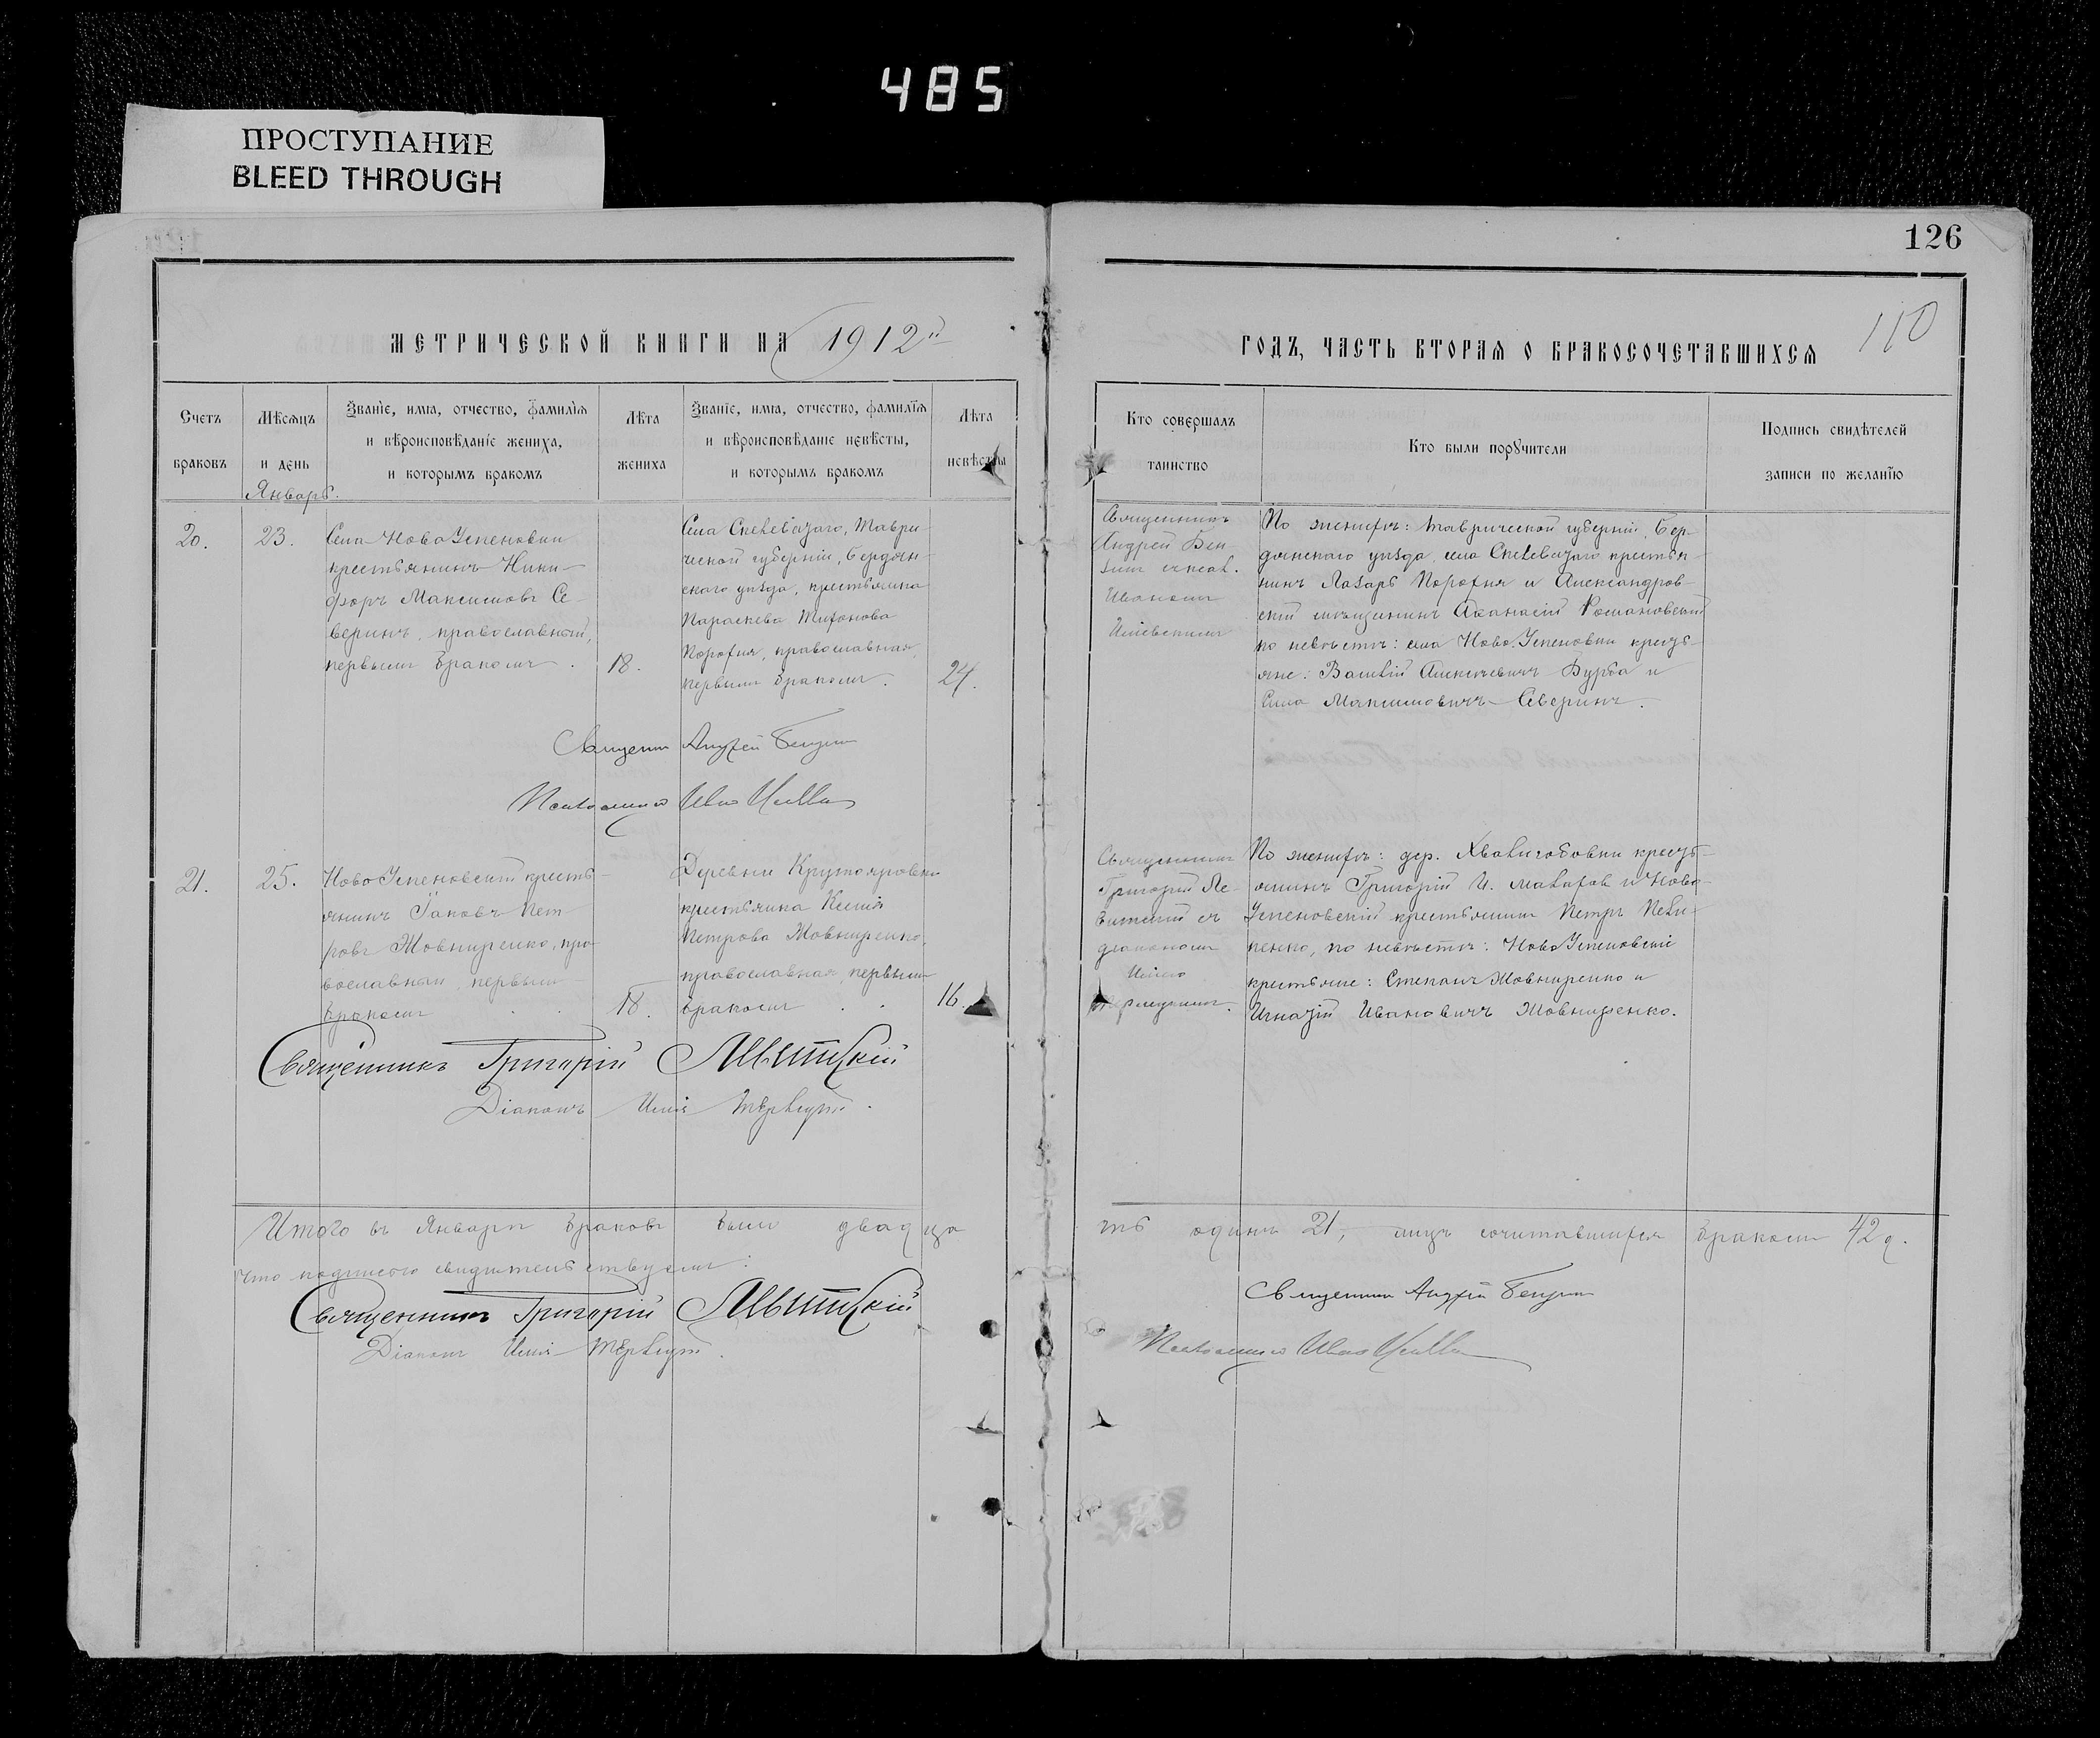 485
ПРОСТУПАНИЕ
BLEED THROUGH
126
110
МЕТРИЧЕСКОЙ КНИГИ НА 1912й
ГОДЪ, ЧАСТЬ ВТОРАЯ О БРАКОСОЧЕТАВШИХСЯ
Счетъ браковъ
Мѣсяцъ и день
Званіе, имя, отчество, фамилія и вѣроисповѣданіе жениха, и которымъ бракомъ
Лѣта жениха
Званіе, имя, отчество, фамилія и вѣроисповѣданіе невѣсты, и которымъ бракомъ
Лѣта невѣсты
Кто совершалъ таинство
Кто были поручители
Подпись свидѣтелей записи по желанію
Январь.
20.
23.
Села НовоУспеновки
крестьянинъ Ники-
форъ Максимовъ Се-
веринъ, православный,
первымъ бракомъ.
18.
Села Таври-
ческой губерніи, Бердян-
скаго уѣзда, крестьянка
Параскева Тифонова
православная,
первымъ бракомъ.
24.
Священникъ
Андрей Бен-
зинъ с псал.
Иваномъ
По женихѣ: Таврической губерніи, Бер-
дянскаго уѣзда, села крестья-
нинъ Лазарь и Александров-
скій мѣщанинъ Аѳанасій Романовскій
по невѣстѣ: села НовоУспеновки кресть-
яне: Василій Алексѣевичъ Бурба и
Савва Максимовичъ Северинъ.
Священникъ Андрей Бензинъ
Псаломщикъ Иванъ
21.
25.
НовоУспеновскій кресть-
янинъ Іаковъ Пет-
ровъ Жовниренко, пра-
вославный, первымъ
бракомъ
18.
Деревни Крутояровки
крестьянка Ксенія
Петрова Жовниренко,
православная, первымъ
бракомъ
16.
Священникъ
Григорій Ле-
витскій съ
діакономъ
Иліею
По женихѣ: дер. кресть-
янинъ Григорій И. и Ново-
Успеновскій крестьянинъ Петръ
по невѣстѣ: НовоУспеновскіе
крестьяне: Степанъ Жовниренко и
Игнатій Ивановичъ Жовниренко.
Священникъ Григорій Левитскій
Діаконъ Илія
Итого въ Январѣ браковъ было двадца
ть одинъ 21, лицъ сочитавшихся бракомъ 42 д.
что подписью свидѣтельствуемъ:
Священникъ Григорій Левитскій
Діаконъ Илія
Священникъ Андрей Бензинъ
Псаломщикъ Иванъ